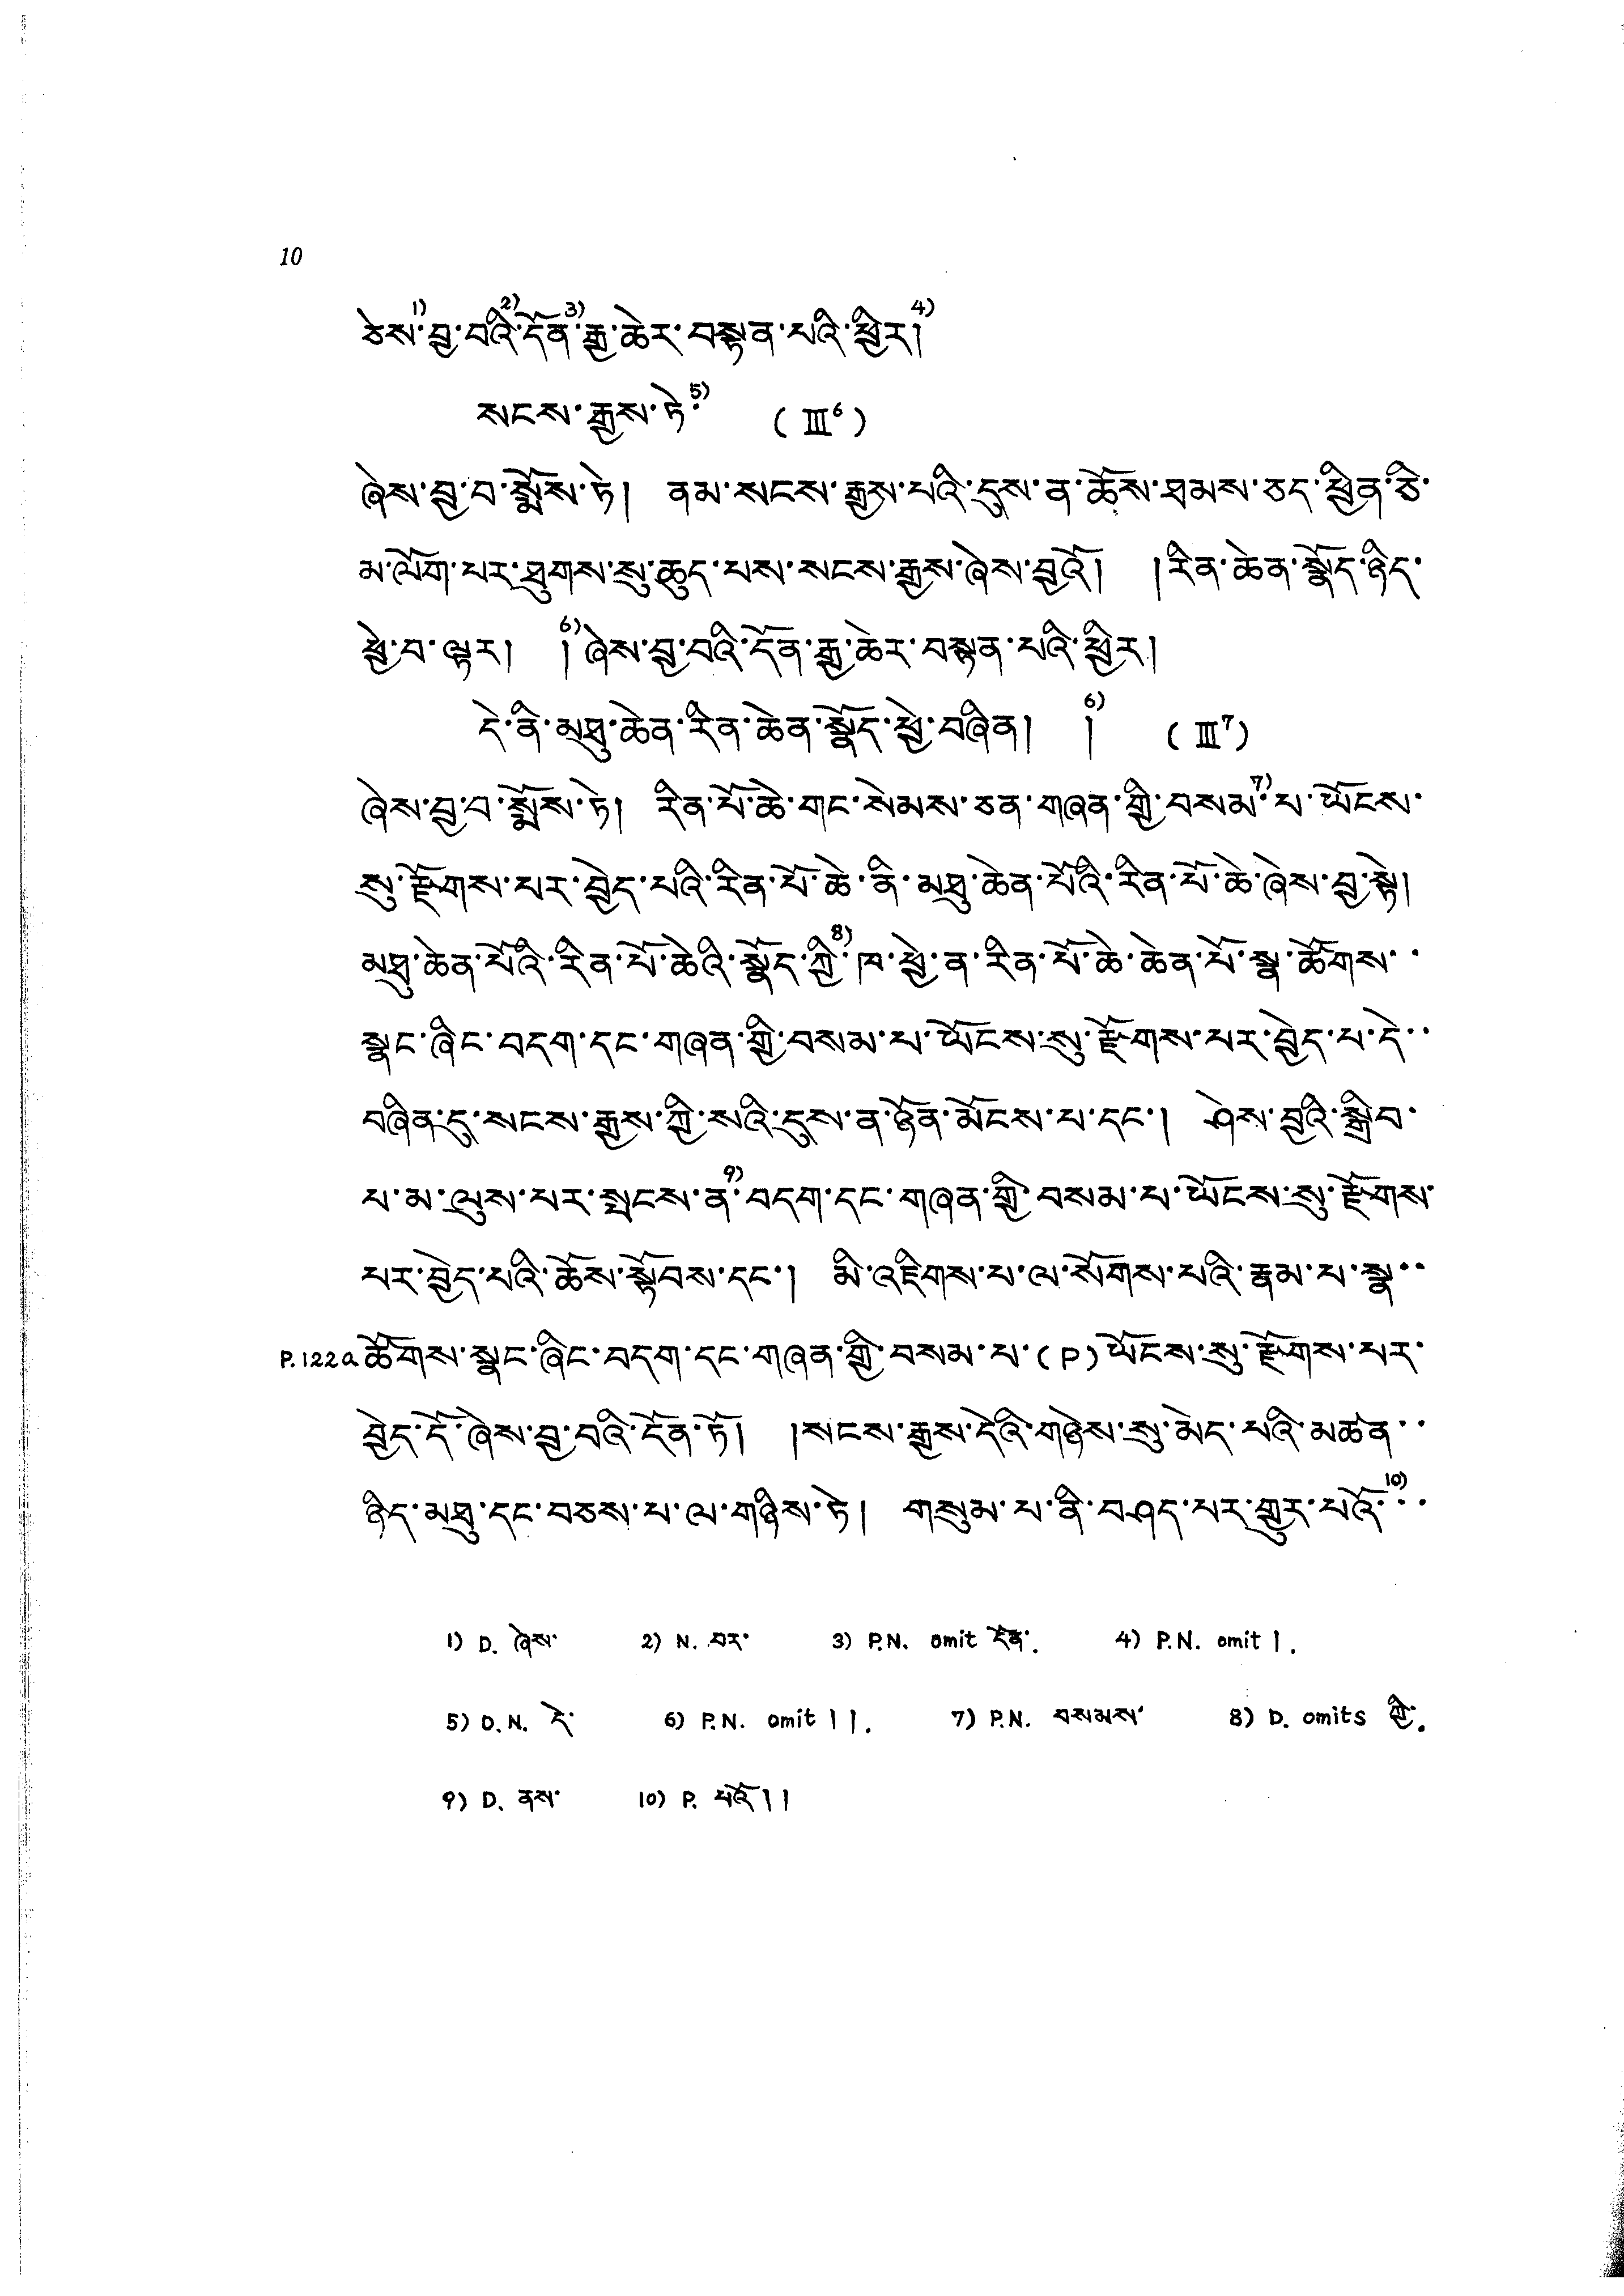 10
ཅེས་1)བྱ་བའི་2)དོན་3)རྒྱ་ཆེར་བསྟན་པའི་ཕྱིར།4)
སངས་རྒྱས་ཏེ་5) (III6)
ཞེས་བྱ་བ་སྨོས་ཏེ། ནམ་སངས་རྒྱས་པའི་དུས་ན་ཆོས་ཐམས་ཅད་ཕྱིན་ཅི་
མ་ལོག་པར་ཐུགས་སུ་ཆུད་པས་སངས་རྒྱས་ཞེས་བྱའོ། །རིན་ཆེན་སྣོད་ཉིད་
ཕྱེ་བ་ལྟར། །6)ཞེས་བྱ་བའི་དོན་རྒྱ་ཆེར་བསྟན་པའི་ཕྱིར།
དེ་ནི་མཐུ་ཆེན་རིན་ཆེན་སྣོད་ཕྱེ་བཞིན། །6) (III7)
ཞེས་བྱ་བ་སྨོས་ཏེ། རིན་པོ་ཆེ་གང་སེམས་ཅན་གཞན་གྱི་བསམ་7)པ་ཡོངས་
སུ་རྫོགས་པར་བྱེད་པའི་རིན་པོ་ཆེ་ནི་མཐུ་ཆེན་པོའི་རིན་པོ་ཆེ་ཞེས་བྱ་སྟེ།
མཐུ་ཆེན་པོའི་རིན་པོ་ཆེའི་སྣོད་ཀྱི་8)ཁ་ཕྱེ་ན་རིན་པོ་ཆེ་ཆེན་པོ་སྣ་ཚོགས་་
སྣང་ཞིང་བདག་དང་གཞན་གྱི་བསམ་པ་ཡོངས་སུ་རྫོགས་པར་བྱེད་པ་དེ་་
བཞིན་དུ་སངས་རྒྱས་ཀྱི་སའི་དུས་ན་ཉོན་མོངས་པ་དང་། ཤེས་བྱའི་སྒྲིབ་
པ་མ་ལུས་པར་སྤངས་ན་9)བདག་དང་གཞན་གྱི་བསམ་པ་ཡོངས་སུ་རྫོགས་
པར་བྱེད་པའི་ཆོས་སྟོབས་དང་། མི་འཇིགས་པ་ལ་སོགས་པའི་རྣམ་པ་སྣ་་
P.122a ཚོགས་སྣང་ཞིང་བདག་དང་གཞན་གྱི་བསམ་པ་(P)ཡོངས་སུ་རྫོགས་པར་
བྱེད་དོ་ཞེས་བྱ་བའི་དོན་ཏོ། །སངས་རྒྱས་དེའི་གཉིས་སུ་མེད་པའི་མཚན་་
ཉིད་མཐུ་དང་བཅས་པ་ལ་གཉིས་ཏེ། གསུམ་པ་ནི་བཤད་པར་གྱུར་པའོ་10)་
1) D. ཞེས་ 2) N. བར་ 3) P.N. omit དོན་. 4) P.N. omit །.
5) D.N. དེ་ 6) P.N. omit ། །. 7) P.N. བསམས་ 8) D. omits ཀྱི་.
9) D. ནས་ 10) P. པའོ། །